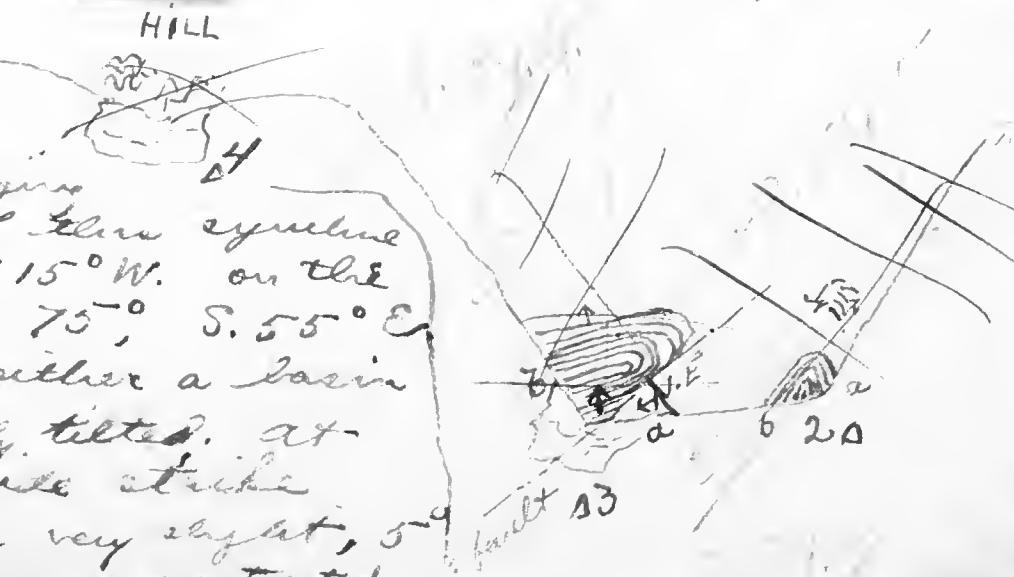 HILL
Δ4
this syncline
15° W. on the
75°, S. 55° E
either a basin
tilted. At
strike
very slight, 5°
b
a
b
a
2Δ
Δ3
fault